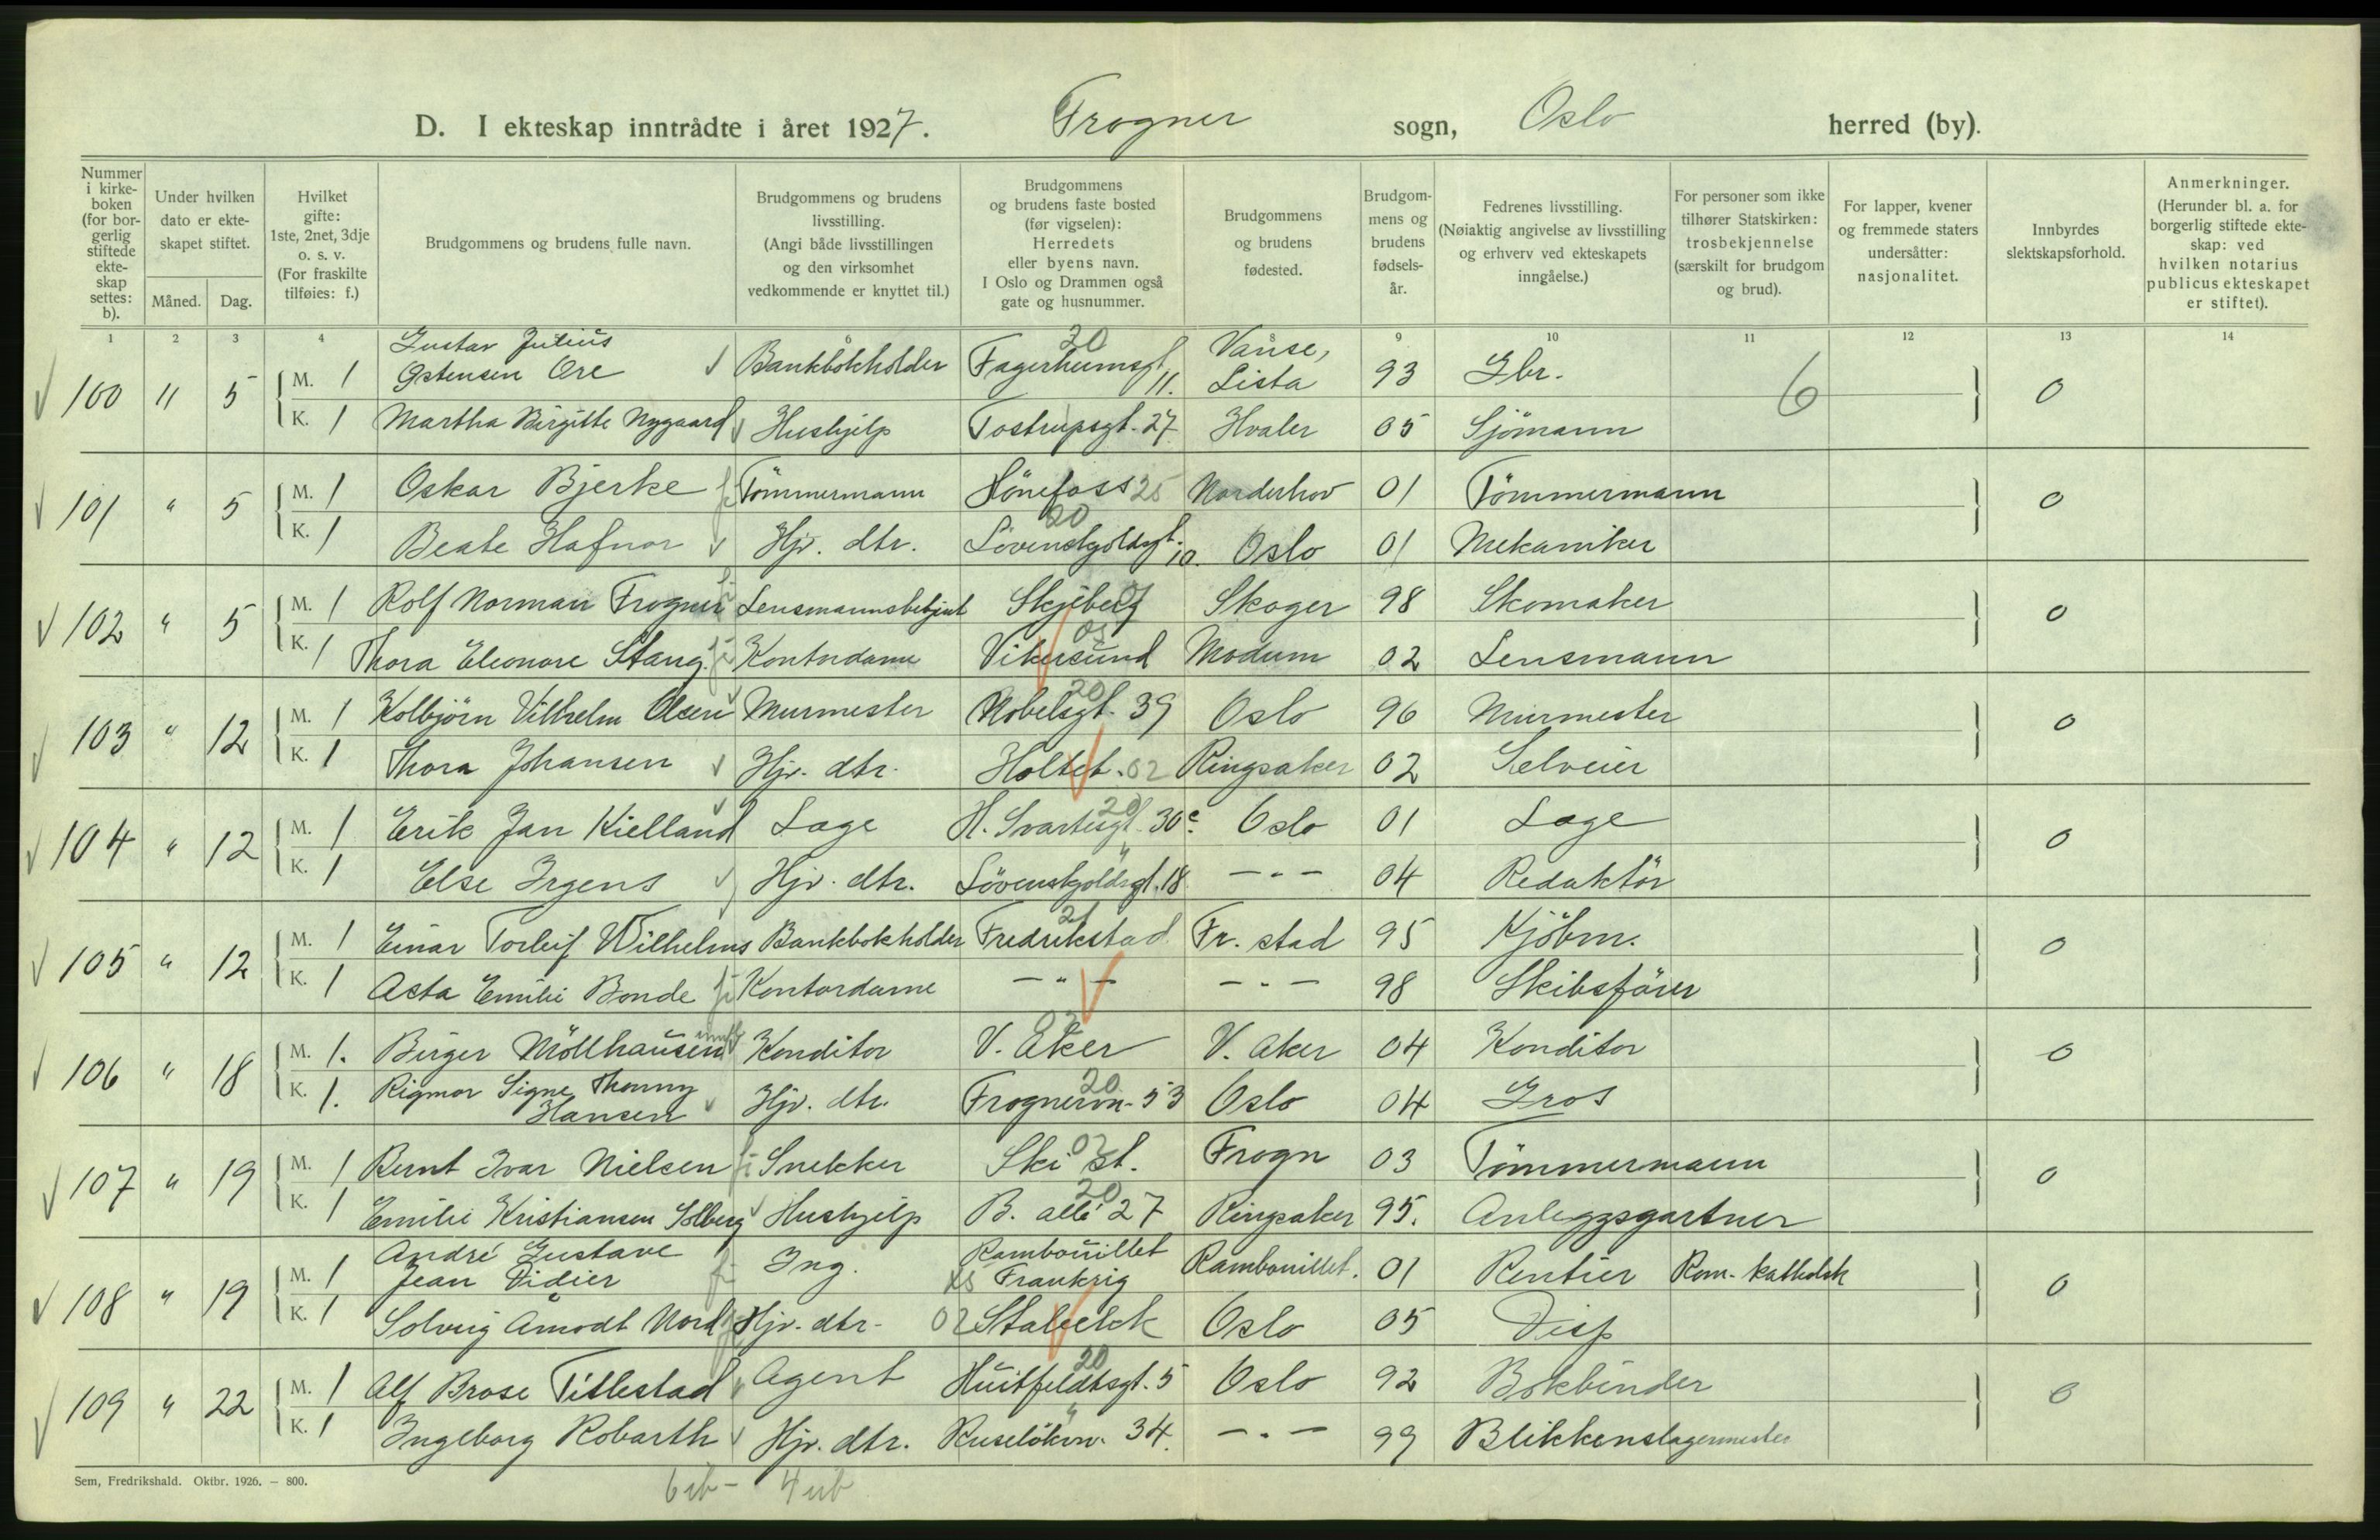 D. I ekteskap inntrådte i året 1927. Frogner sogn, Oslo herred (by).
Nummer i kirkeboken (for borgerlig stiftede ekteskap settes: b).
Under hvilken dato er ekteskapet stiftet.
Måned. Dag.
Hvilket gifte: 1ste, 2net, 3dje o. s. v. (For fraskilte tilføies: f.)
Brudgommens og brudens fulle navn.
Brudgommens og brudens livsstilling. (Angi både livsstillingen og den virksomhet vedkommende er knyttet til.)
Brudgommens og brudens faste bosted (før vigselen): Herredets eller byens navn. I Oslo og Drammen også gate og husnummer.
Brudgommens og brudens fødested.
Brudgommens og brudens fødselsår.
Fedrenes livsstilling. (Nøiaktig angivelse av livsstilling og erhverv ved ekteskapets inngåelse.)
For personer som ikke tilhører Statskirken: trosbekjennelse (særskilt for brudgom og brud).
For lapper, kvener og fremmede staters undersåtter: nasjonalitet.
Innbyrdes slektskapsforhold.
Anmerkninger. (Herunder bl. a. for borgerlig stiftede ekteskap: ved hvilken notarius publicus ekteskapet er stiftet).
1 2 3 4 9 10 11 12 13 14
100 11 5 M. 1 Gustav Julius Østensen Ore Bankbokholder Fagerheimsgt. 11. 20 Vanse, Lista 93 Gbr. 6 0
K. 1 Martha Birgitte Nygaard Hushjelp Tostrupsgt. 27 Hvaler 05 Sjömann
101 " 5 M. 1 Oskar Bjerke Tömmermann Hönefoss 25 Norderhov 01 Tömmermann 0
K. 1 Beate Hafnor Hjv. dtr. Lövenskjoldsgt. 10. 20 Oslo 01 Mekaniker
102 " 5 M. 1 Rolf Norman Frogner Lensmannsbetjent Skjeberg 01 Skoger 98 Skomaker 0
K. 1 Thora Eleonore Stang. Kontordame Vikersund 05 Modum 02 Lensmann
103 " 12 M. 1 Kolbjörn Vilhelm Olsen Murmester Nobelsgt. 39 20 Oslo 96 Murmester 0
K. 1 Thora Johansen Hjv. dtr. Holtet. 02 Ringsaker 02 Selveier
104 " 12 M. 1 Erik Jan Kielland Læge H. Svartesgt. 30c. 20 Oslo 01 Læge 0
K. 1 Else Irgens Hjv. dtr. Lövenskjoldsgt. 18 " — " — 04 Redaktör
105 " 12 M. 1 Einar Torleif Wilhelms Bankbokholder Fredrikstad 21 Fr. stad 95 Kjöbm. 0
K. 1 Asta Emilie Bonde Kontordame — " — — " — 98 Skibsförer
106 " 18 M. 1. Birger Möllhausen Konditor V. Aker 02 V. Aker 04 Konditor 0
K. 1. Rigmor Signe Thonny Hansen Hjv. dtr. Frognervn. 53 20 Oslo 04 Gros
107 " 19 M. 1 Bernt Ivar Nielsen Snekker Ski st. 02 Frogn 03 Tömmermann 0
K. 1 Emilie Kristiansen Solberg Hushjelp B. allé 27 20 Ringsaker 95. Anleggsgartner
108 " 19 M. 1 André Gustave Jean Didier Ing. Rambouillet Frankrig Rambouillet. 01 Rentier Rom.-katholsk 0
K. 1 Solveig Amodt Nord Hjv. dtr. 02 Stabekk Oslo 05 Disp
109 " 22 M. 1 Alf Brose Titlestad Agent Huitfeldtsgt. 5 20 Oslo 92 Bokbinder 0
K. 1 Ingeborg Robarth Hjv. dtr. Ruselökvn. 34. " — " — 99 Blikkenslagermester
Sem, Fredrikshald. Oktbr. 1926. — 800.
6 ib - 4 ub